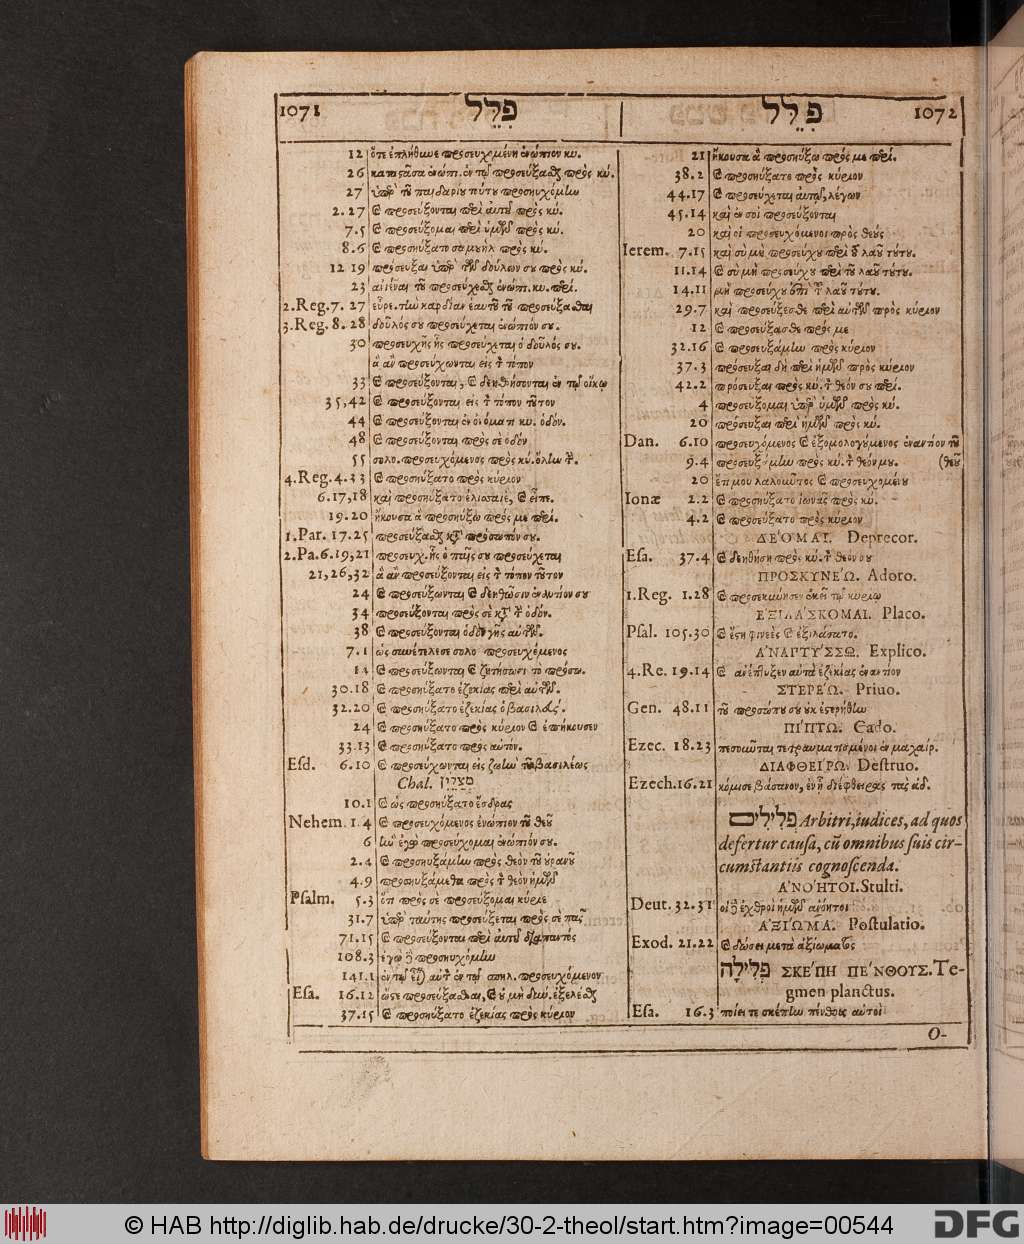 1071 פִלֵּל
12 ὅτε ἐπλήθυνε προσευχομένη ἐνώπιον κυ.
26 καταστᾶσα ἐνώπ. ἐν τῷ προσεύξασθαι πρὸς κύ.
27 ὑπὲρ τοῦ παιδαρίου τούτου προσηυχόμην
2.27 καὶ προσεύξονται περὶ αὐτοῦ πρὸς κύ.
7.5 καὶ προσεύξομαι περὶ ὑμῶν πρὸς κύ.
8.6 καὶ προσηύξατο σαμουὴλ πρὸς κύ.
12 19 πρόσευξαι ὑπὲρ τῶν δούλων σου πρὸς κύ.
23 ἀνιέναι τοῦ προσεύχεσθαι ἐνώπ. κυ. περί.
2.Reg.7. 27 εὗρε. τὴν καρδίαν ἑαυτοῦ τοῦ προσεύξασθαι
3.Reg.8. 28 δοῦλός σου προσεύχεται ἐνώπιόν σου.
30 προσευχῆς ἧς προσεύχεται ὁ δοῦλός σου.
ἃ ἂν προσεύχωνται εἰς τὸν τόπον
33 καὶ προσεύξονται, καὶ δεηθήσονται ἐν τῷ οἴκῳ
35,42 καὶ προσεύξονται εἰς τὸν τόπον τοῦτον
44 καὶ προσεύξονται ἐν ὀνόματι κυ. ὁδόν.
48 καὶ προσεύξονται πρὸς σὲ ὁδόν
55 σολο. προσευχόμενος πρὸς κύ. ὅλην τὴν.
4.Reg.4.33 καὶ προσηύξατο πρὸς κύριον
6.17,18 καὶ προσηύξατο ἐλισσαιὲ, καὶ εἶπε.
19.20 ἤκουσα ἃ προσηύξω πρός με περί.
1.Par. 17.25 προσεύξασθαι κατὰ πρόσωπόν σου.
2.Pa.6.19,21 προσευχ. ἧς ὁ παῖς σου προσεύχεται
21,26,32 ἃ ἂν προσεύξονται εἰς τὸν τόπον τοῦτον
24 καὶ προσεύξωνται καὶ δεηθῶσιν ἐναντίον σου
34 προσεύξονται πρὸς σὲ κατὰ τὴν ὁδόν.
38 καὶ προσεύξονται ὁδὸν γῆς αὐτῶν.
7.1 ὡς συνετέλεσε σολο προσευχόμενος
14 καὶ προσεύξωνται καὶ ζητήσωσι τὸ πρόσω.
30.18 καὶ προσηύξατο ἐζεκίας περὶ αὐτῶν.
32.20 καὶ προσηύξατο ἐζεκίας ὁ βασιλεύς.
24 καὶ προσηύξατο πρὸς κύριον καὶ ἐπήκουσεν
33.13 καὶ προσηύξατο πρὸς αὐτόν.
Esd. 6.10 καὶ προσεύχωνται εἰς ζωὴν τοῦ βασιλέως
Chal. מְצַלַּיִן
10.1 καὶ ὡς προσηύξατο ἔσδρας
Nehem. 1.4 καὶ προσευχόμενος ἐνώπιον τοῦ θεοῦ
6 ἣν ἐγὼ προσεύχομαι ἐνώπιόν σου.
2.4 καὶ προσηυξάμην πρὸς θεὸν τοῦ οὐρανοῦ
4.9 προσηυξάμεθα πρὸς τὸν θεὸν ἡμῶν
Psalm. 5.3 ὅτι πρὸς σὲ προσεύξομαι κύριε
31.7 ὑπὲρ ταύτης προσεύξεται πρὸς σὲ πᾶς
71.15 καὶ προσεύξονται περὶ αὐτοῦ διαπαντὸς
108.3 ἐγὼ δὲ προσηυχόμην
141.1 ἐν τῷ εἶναι αὐτὸν ἐν τῷ σπηλ. προσευχόμενον
Esa. 16.12 ὥστε προσεύξασθαι, καὶ οὐ μὴ δύν. ἐξελέσθαι
37.15 καὶ προσηύξατο ἐζεκίας πρὸς κύριον
פִלֵּל 1072
21 ἤκουσα ἃ προσηύξω πρός με περί.
38.2 καὶ προσηύξατο πρὸς κύριον
44.17 καὶ προσεύχεται αὐτῷ, λέγων
45.14 καὶ ἐν σοὶ προσεύξονται
20 καὶ οἱ προσευχόμενοι πρὸς θεοὺς
Ierem. 7.15 καὶ σὺ μὴ προσεύχου περὶ τοῦ λαοῦ τούτου.
11.14 καὶ σὺ μὴ προσεύχου περὶ τοῦ λαοῦ τούτου.
14.11 μὴ προσεύχου περὶ τοῦ λαοῦ τούτου.
29.7 καὶ προσεύξεσθε περὶ αὐτῶν πρὸς κύριον
12 καὶ προσεύξασθε πρός με
32.16 καὶ προσευξάμην πρὸς κύριον
37.3 πρόσευξαι δὴ περὶ ἡμῶν πρὸς κύριον
42.2 πρόσευξαι πρὸς κύ. τὸν θεόν σου περί.
4 προσεύξομαι ὑπὲρ ὑμῶν πρὸς κύ.
20 πρόσευξαι περὶ ἡμῶν πρὸς κύ.
Dan. 6.10 προσευχόμενος καὶ ἐξομολογούμενος ἐναντίον τοῦ
9.4 προσευξάμην πρὸς κύ. τὸν θεόν μου. (θεοῦ
20 ἔτι μου λαλοῦντος καὶ προσευχομένου
Ionæ 2.2 καὶ προσηύξατο ἰωνᾶς πρὸς κύ.
4.2 καὶ προσεύξατο πρὸς κύριον
ΔΕΌΜΑΙ. Deprecor.
Esa. 37.4 καὶ δεηθήσῃ πρὸς κύ. τὸν θεόν σου
ΠΡΟΣΚΥΝΕΏ. Adoro.
1.Reg. 1.28 καὶ προσεκύνησεν ἐκεῖ τῷ κυρίῳ
ΕΞΙΛΆΣΚΟΜΑΙ. Placo.
Psal. 105.30 καὶ ἔστη φινεὲς καὶ ἐξιλάσατο.
ΑΝΑΠΤΎΣΣΩ. Explico.
4.Re. 19.14 καὶ ἀνέπτυξεν αὐτὰ ἐζεκίας ἐναντίον
ΣΤΕΡΕΏ. Priuo.
Gen. 48.11 τοῦ προσώπου σου οὐκ ἐστερήθην
ΠΊΠΤΩ. Cado.
Ezec. 18.23 πεσοῦνται τετραυματισμένοι ἐν μαχαίρ.
ΔΙΑΦΘΕΊΡΩ. Destruo.
Ezech.16.21 κόμισε βάσανον, ἐν ᾗ διέφθειρας τὰς ἀδ.
פְּלִילִים Arbitri, iudices, ad quos
defertur causa, cũ omnibus suis cir-
cumstantiis cognoscenda.
ΑΝΌΗΤΟΙ. Stulti.
Deut. 32.31 οἱ δὲ ἐχθροὶ ἡμῶν ἀνόητοι
ΑΞΊΩΜΑ. Postulatio.
Exod. 21.22 καὶ δώσει μετὰ ἀξιώματος
פְּלִילָה ΣΚΈΠΗ ΠΈΝΘΟΥΣ. Te-
gmen planctus.
Esa. 16.3 ποίει τε σκέπην πένθους αὐτοὶ
O-
© HAB http://diglib.hab.de/drucke/30-2-theol/start.htm?image=00544
DFG